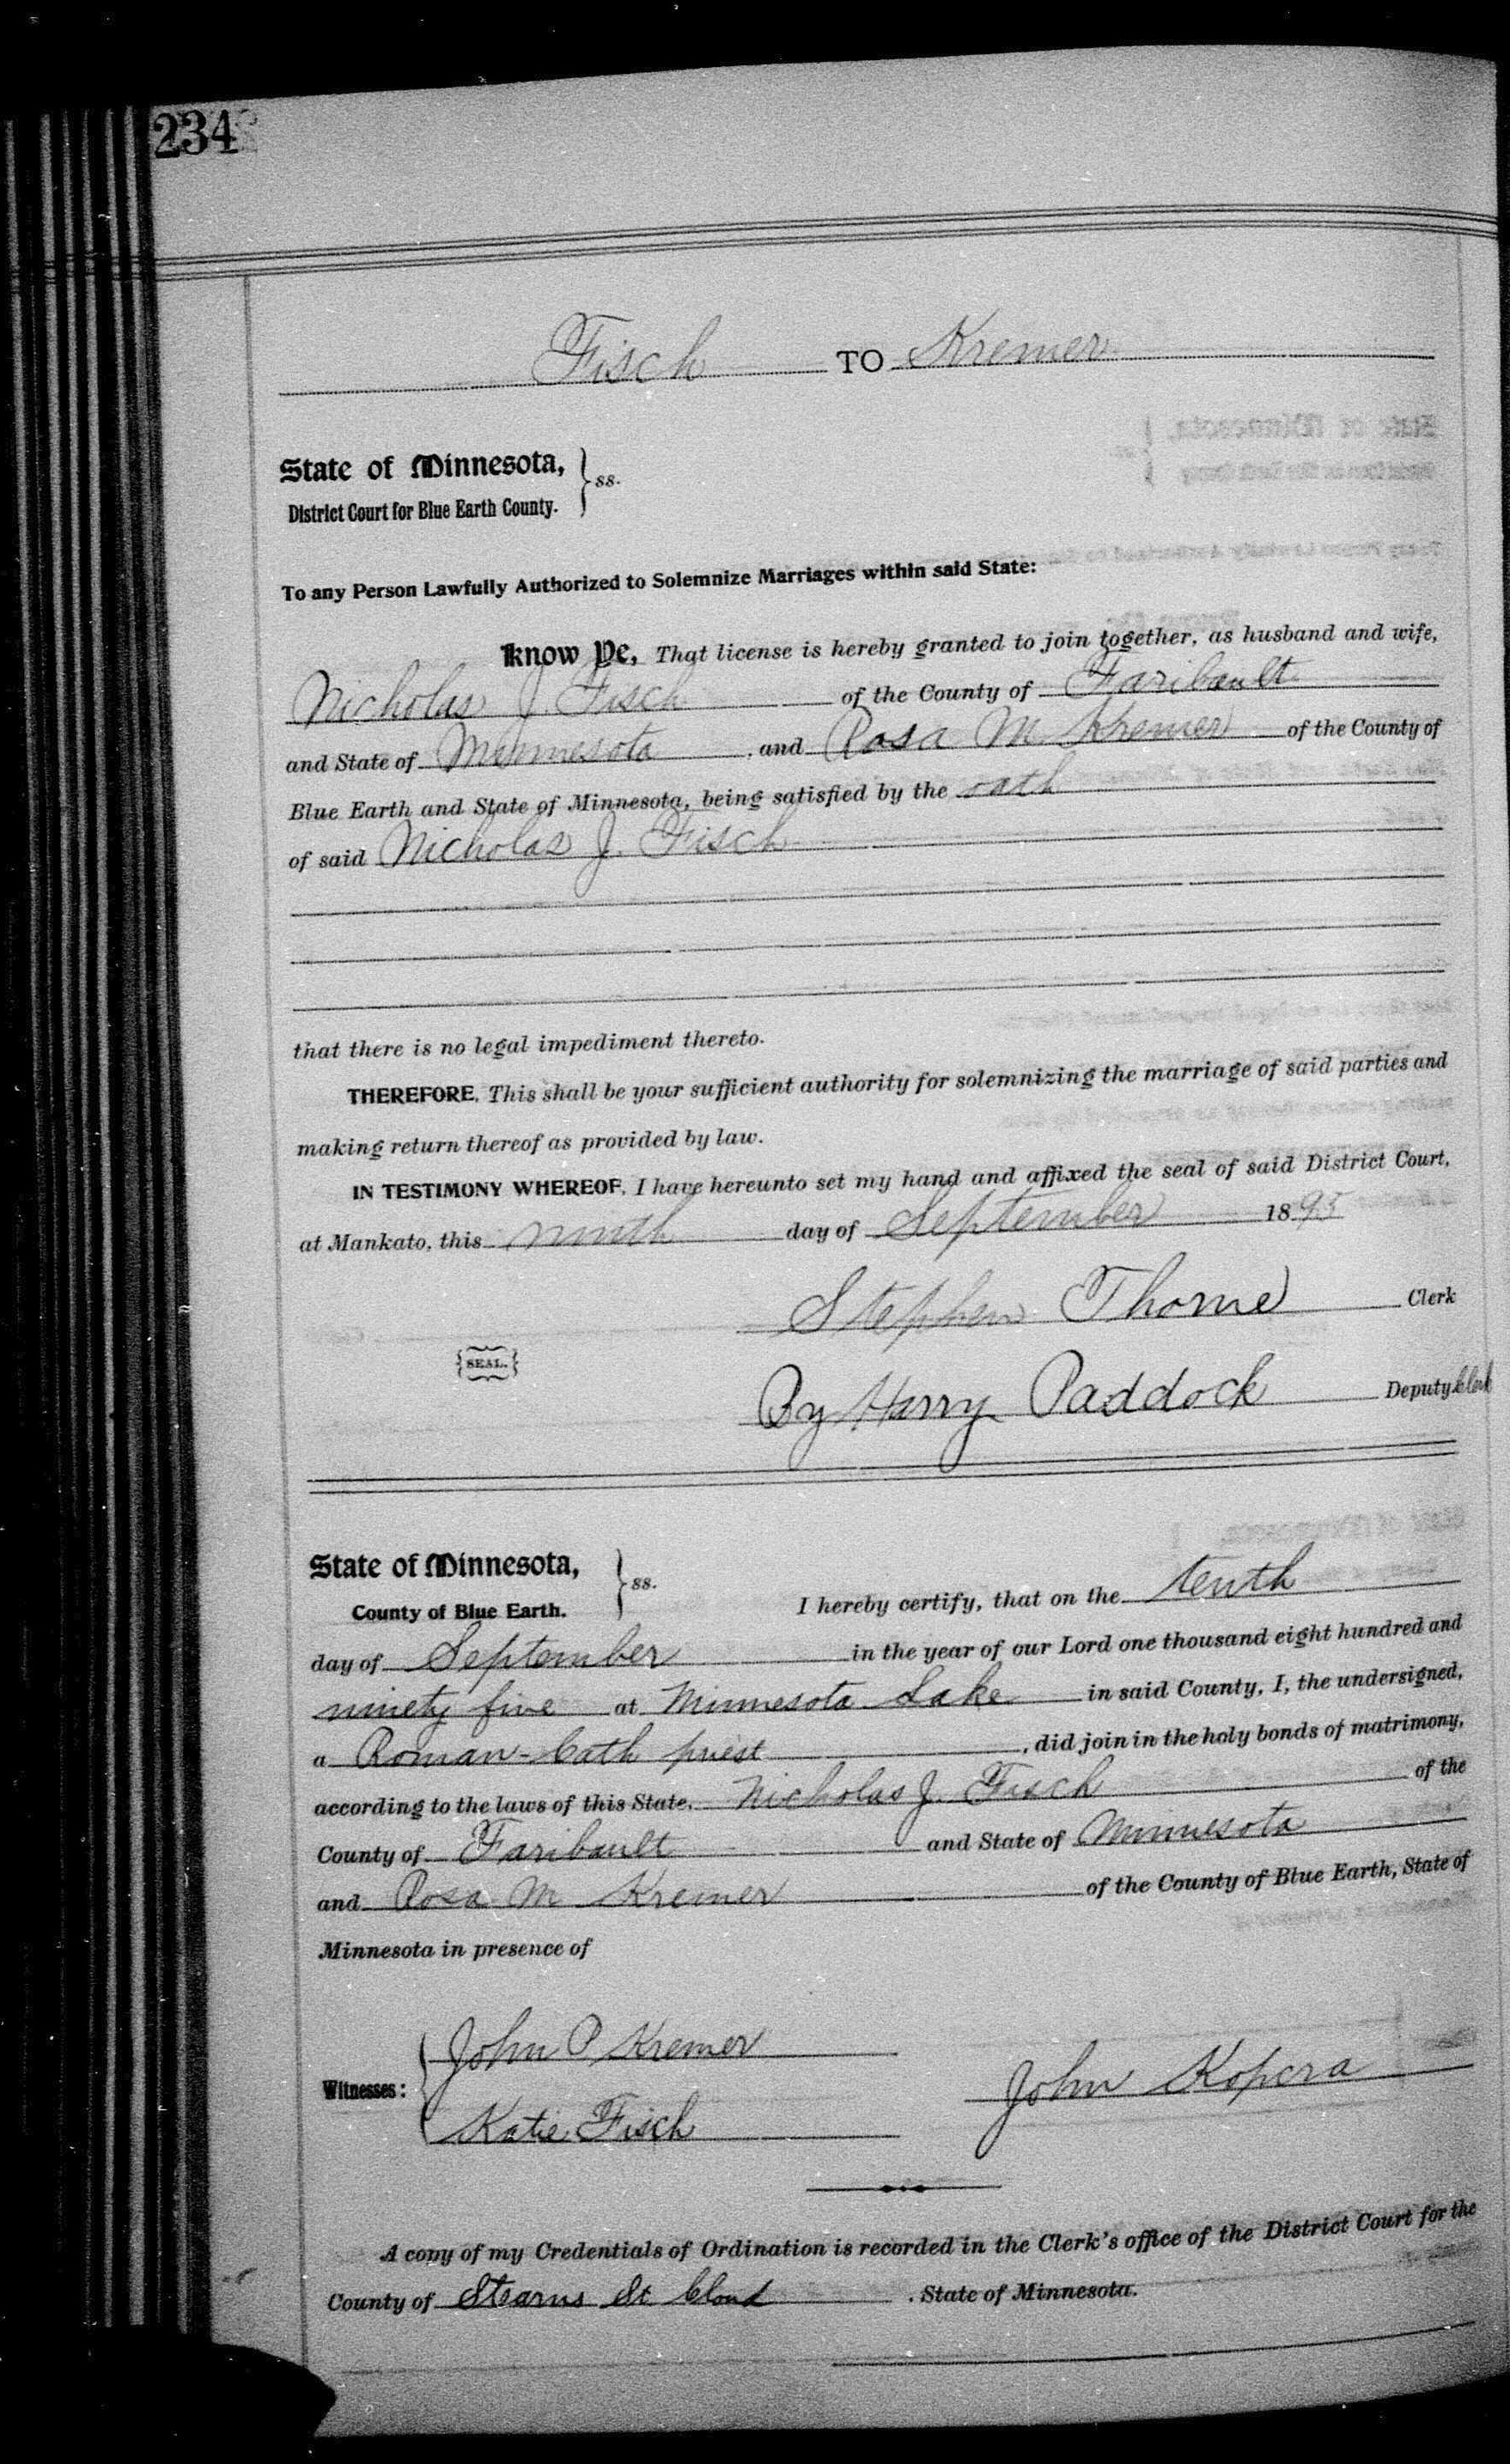 234
Fisch TO Kremer
State of Minnesota,
District Court for Blue Earth County. } ss.
To any Person Lawfully Authorized to Solemnize Marriages within said State:
Know Ye, That license is hereby granted to join together, as husband and wife,
Nicholas J. Fisch of the County of Faribault
and State of Minnesota, and Rosa M Kremer of the County of
Blue Earth and State of Minnesota, being satisfied by the oath
of said Nicholas J. Fisch
that there is no legal impediment thereto.
THEREFORE, This shall be your sufficient authority for solemnizing the marriage of said parties and
making return thereof as provided by law.
IN TESTIMONY WHEREOF, I have hereunto set my hand and affixed the seal of said District Court,
at Mankato, this ninth day of September 1895
Stephen Thorne Clerk
{SEAL.}
By Harry Paddock Deputy Clerk
State of Minnesota,
County of Blue Earth. } ss.
I hereby certify, that on the tenth
day of September in the year of our Lord one thousand eight hundred and
ninety five at Minnesota Lake in said County, I, the undersigned,
a Roman-Cath priest, did join in the holy bonds of matrimony,
according to the laws of this State, Nicholas J. Fisch of the
County of Faribault and State of Minnesota
and Rosa M Kremer of the County of Blue Earth, State of
Minnesota in presence of
John P Kremer
Witnesses:
Katie Fisch
John Kopera
A copy of my Credentials of Ordination is recorded in the Clerk's office of the District Court for the
County of Stearns St Cloud. State of Minnesota.